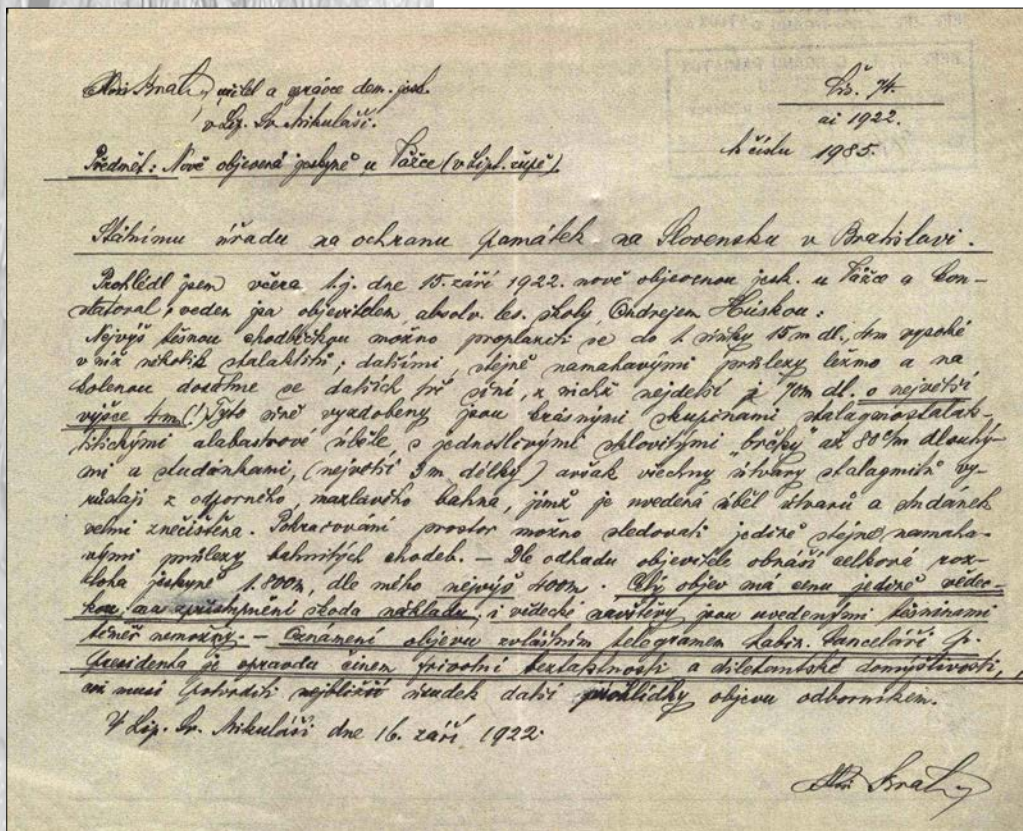 Alois Král, učitel a správce dem. jesk.
v Lip. Sv. Mikuláši.
Čís. 74.
ai 1922.
k číslu 1985.
Předmět: Nově objevená jeskyně u Vážce (v Lipt. župě)
Státnímu úřadu na ochranu památek na Slovensku v Bratislavi.
Prohlédl jsem včera t.j. dne 15. září 1922. nově objevenou jesk. u Vážce a kon-
statoval, veden jsa objevitelem, absolv. les. školy, Ondrejem Húskou:
Nejvýš těsnou chodbičkou možno proplaziti se do 1. síňky 15 m dl., 4m vysoké
v níž několik stalaktitů; dalšími, stejně namahavými průlezy ležmo a na
kolenou dostáme se dalších tří síní, z nichž nejdelší je 70m dl. o největší
výšce 4m(!) Tyto síně vyzdobeny jsou krásnými skupinami stalagmostalak-
titickými alabastrové běle s jednotlivými sklovitými "brčky" až 80 c/m dlouhý-
mi a studánkami, (největší 3m délky) avšak všechny útvary stalagmitů vy-
růstají z odporného, mazlavého bahna, jímž je uvedená běl útvarů a studánek
velmi znečistěna. Pokračování prostor možno sledovati jedině stejně namaha-
vými průlezy bahnitých chodeb. – Dle odhadu objevitele obnáší celková roz-
loha jeskyně 1.800m, dle mého nejvýš 400m. Celý objev má cenu jedině vědec-
kou, na zpřístupnění škoda nákladu, i vědecké navštěvy jsou uvedenými těsninami
téměř nemožny. – Oznámení objevu zvláštním telegramem kabin. kanceláři p.
Presidenta je opravdu činem prvotní beztaktnosti a diletantské domýšlivosti,
což musí potvrditi nejbližší úsudek další prohlídky objevu odborníkem.
V Lip. Sv. Mikuláši dne 16. září 1922.
Alois Král